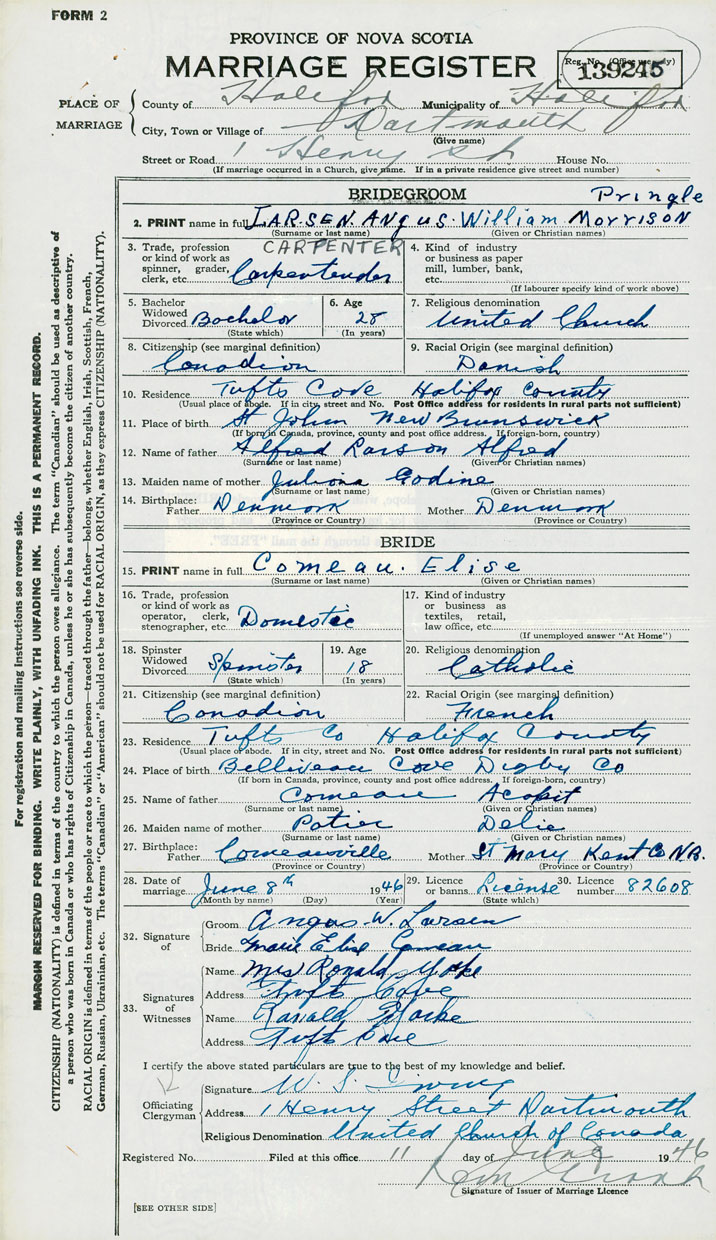 FORM 2
PROVINCE OF NOVA SCOTIA
MARRIAGE REGISTER
Reg. No. (Office use only)
139245
PLACE OF MARRIAGE
County of Halifax Municipality of Halifax
City, Town or Village of Dartmouth
(Give name)
Street or Road 1 Henry St House No.
(If marriage occurred in a Church, give name. If in a private residence give street and number)
BRIDEGROOM
Pringle
2. PRINT name in full LARSEN. ANGUS. William MORRISON
(Surname or last name) (Given or Christian names)
CARPENTER
3. Trade, profession or kind of work as spinner, grader, clerk, etc. Carpentender
4. Kind of industry or business as paper mill, lumber, bank, etc.
(If labourer specify kind of work above)
5. Bachelor Widowed Divorced Bachelor
(State which)
6. Age 28
(In years)
7. Religious denomination United Church
8. Citizenship (see marginal definition) Canadian
9. Racial Origin (see marginal definition) Danish
10. Residence Tufts Cove Halifax County
(Usual place of abode. If in city, street and No. Post Office address for residents in rural parts not sufficient)
11. Place of birth St John New Brunswick
(If born in Canada, province, county and post office address. If foreign-born, country)
12. Name of father Alfred Larson Alfred
(Surname or last name) (Given or Christian names)
13. Maiden name of mother Juliana Godine
(Surname or last name) (Given or Christian names)
14. Birthplace: Father Denmark Mother Denmark
(Province or Country) (Province or Country)
BRIDE
15. PRINT name in full Comeau. Elise
(Surname or last name) (Given or Christian names)
16. Trade, profession or kind of work as operator, clerk, stenographer, etc. Domestic
17. Kind of industry or business as textiles, retail, law office, etc.
(If unemployed answer "At Home")
18. Spinster Widowed Divorced Spinster
(State which)
19. Age 18
(In years)
20. Religious denomination Catholic
21. Citizenship (see marginal definition) Canadian
22. Racial Origin (see marginal definition) French
23. Residence Tufts Co Halifax County
(Usual place of abode. If in city, street and No. Post Office address for residents in rural parts not sufficient)
24. Place of birth Belliveau Cove Digby Co
(If born in Canada, province, county and post office address. If foreign-born, country)
25. Name of father Comeau Acapit
(Surname or last name) (Given or Christian names)
26. Maiden name of mother Potier Delie
(Surname or last name) (Given or Christian names)
27. Birthplace: Father Comeauville Mother St Mary Kent Co N.B.
(Province or Country) (Province or Country)
28. Date of marriage June 8th 1946
(Month by name) (Day) (Year)
29. Licence or banns License
(State which)
30. Licence number 82608
32. Signature of
Groom Angus W. Larsen
Bride Marie Elise Comeau
33. Signatures of Witnesses
Name Mrs Ronald Yorke
Address Tufts Cove
Name Ronald Yorke
Address Tufts Cove
I certify the above stated particulars are true to the best of my knowledge and belief.
Officiating Clergyman
Signature W. S.
Address 1 Henry Street Dartmouth
Religious Denomination United Church of Canada
Registered No. Filed at this office 11 day of June 1946
Signature of Issuer of Marriage Licence
[SEE OTHER SIDE]
For registration and mailing instructions see reverse side.
MARGIN RESERVED FOR BINDING. WRITE PLAINLY, WITH UNFADING INK. THIS IS A PERMANENT RECORD.
CITIZENSHIP (NATIONALITY) is defined in terms of the country to which the person owes allegiance. The term "Canadian" should be used as descriptive of
a person who was born in Canada or who has rights of Citizenship in Canada, unless he or she has subsequently become the citizen of another country.
RACIAL ORIGIN is defined in terms of the people or race to which the person—traced through the father—belongs, whether English, Irish, Scottish, French,
German, Russian, Ukrainian, etc. The terms "Canadian" or "American" should not be used for RACIAL ORIGIN, as they express CITIZENSHIP (NATIONALITY).